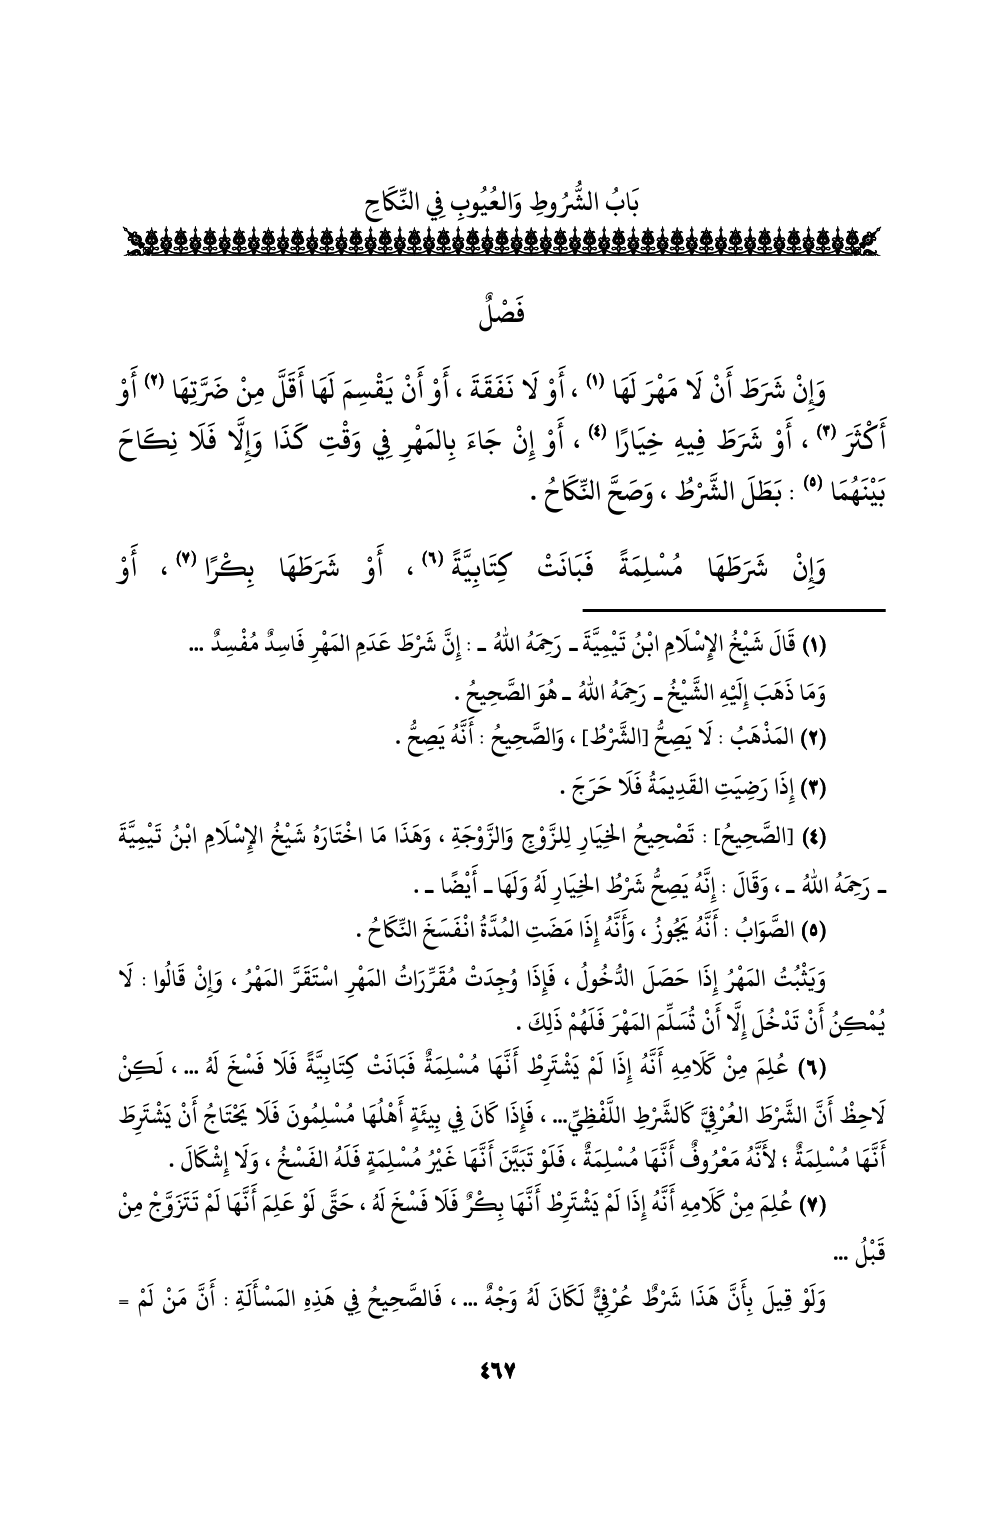 بَابُ الشُّرُوطِ وَالعُيُوبِ فِي النِّكَاحِ
فَصْلٌ
وَإِنْ شَرَطَ أَنْ لَا مَهْرَ لَهَا (١) ، أَوْ لَا نَفَقَةَ ، أَوْ أَنْ يَقْسِمَ لَهَا أَقَلَّ مِنْ ضَرَّتِهَا (٢) أَوْ
أَكْثَرَ (٣) ، أَوْ شَرَطَ فِيهِ خِيَارًا (٤) ، أَوْ إِنْ جَاءَ بِالمَهْرِ فِي وَقْتِ كَذَا وَإِلَّا فَلَا نِكَاحَ
بَيْنَهُمَا (٥) : بَطَلَ الشَّرْطُ ، وَصَحَّ النِّكَاحُ .
وَإِنْ شَرَطَهَا مُسْلِمَةً فَبَانَتْ كِتَابِيَّةً (٦) ، أَوْ شَرَطَهَا بِكْرًا (٧) ، أَوْ
(١) قَالَ شَيْخُ الإِسْلَامِ ابْنُ تَيْمِيَّةَ ـ رَحِمَهُ اللهُ ـ : إِنَّ شَرْطَ عَدَمِ المَهْرِ فَاسِدٌ مُفْسِدٌ ...
وَمَا ذَهَبَ إِلَيْهِ الشَّيْخُ ـ رَحِمَهُ اللهُ ـ هُوَ الصَّحِيحُ .
(٢) المَذْهَبُ : لَا يَصِحُّ [الشَّرْطُ] ، وَالصَّحِيحُ : أَنَّهُ يَصِحُّ .
(٣) إِذَا رَضِيَتِ القَدِيمَةُ فَلَا حَرَجَ .
(٤) [الصَّحِيحُ] : تَصْحِيحُ الخِيَارِ لِلزَّوْجِ وَالزَّوْجَةِ ، وَهَذَا مَا اخْتَارَهُ شَيْخُ الإِسْلَامِ ابْنُ تَيْمِيَّةَ
ـ رَحِمَهُ اللهُ ـ ، وَقَالَ : إِنَّهُ يَصِحُّ شَرْطُ الخِيَارِ لَهُ وَلَهَا ـ أَيْضًا ـ .
(٥) الصَّوَابُ : أَنَّهُ يَجُوزُ ، وَأَنَّهُ إِذَا مَضَتِ المُدَّةُ انْفَسَخَ النِّكَاحُ .
وَيَثْبُتُ المَهْرُ إِذَا حَصَلَ الدُّخُولُ ، فَإِذَا وُجِدَتْ مُقَرِّرَاتُ المَهْرِ اسْتَقَرَّ المَهْرُ ، وَإِنْ قَالُوا : لَا
يُمْكِنُ أَنْ تَدْخُلَ إِلَّا أَنْ تُسَلِّمَ المَهْرَ فَلَهُمْ ذَلِكَ .
(٦) عُلِمَ مِنْ كَلَامِهِ أَنَّهُ إِذَا لَمْ يَشْتَرِطْ أَنَّهَا مُسْلِمَةٌ فَبَانَتْ كِتَابِيَّةً فَلَا فَسْخَ لَهُ ... ، لَكِنْ
لَاحِظْ أَنَّ الشَّرْطَ العُرْفِيَّ كَالشَّرْطِ اللَّفْظِيِّ... ، فَإِذَا كَانَ فِي بِيئَةٍ أَهْلُهَا مُسْلِمُونَ فَلَا يَحْتَاجُ أَنْ يَشْتَرِطَ
أَنَّهَا مُسْلِمَةٌ ؛ لأَنَّهُ مَعْرُوفٌ أَنَّهَا مُسْلِمَةٌ ، فَلَوْ تَبَيَّنَ أَنَّهَا غَيْرُ مُسْلِمَةٍ فَلَهُ الفَسْخُ ، وَلَا إِشْكَالَ .
(٧) عُلِمَ مِنْ كَلَامِهِ أَنَّهُ إِذَا لَمْ يَشْتَرِطْ أَنَّهَا بِكْرٌ فَلَا فَسْخَ لَهُ ، حَتَّى لَوْ عَلِمَ أَنَّهَا لَمْ تَتَزَوَّجْ مِنْ
قَبْلُ ...
وَلَوْ قِيلَ بِأَنَّ هَذَا شَرْطٌ عُرْفِيٌّ لَكَانَ لَهُ وَجْهٌ ... ، فَالصَّحِيحُ فِي هَذِهِ المَسْأَلَةِ : أَنَّ مَنْ لَمْ =
٤٦٧